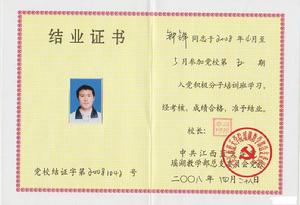 结业证书
党校结证字第2008104号
同志于2008年4月至
5月参加党校第 期
入党积极分子培训班学习,
经考核,成绩合格,准予结业。
校长:
中共江西
瑶湖教学部总支委员会党校
二00八年四月二八日